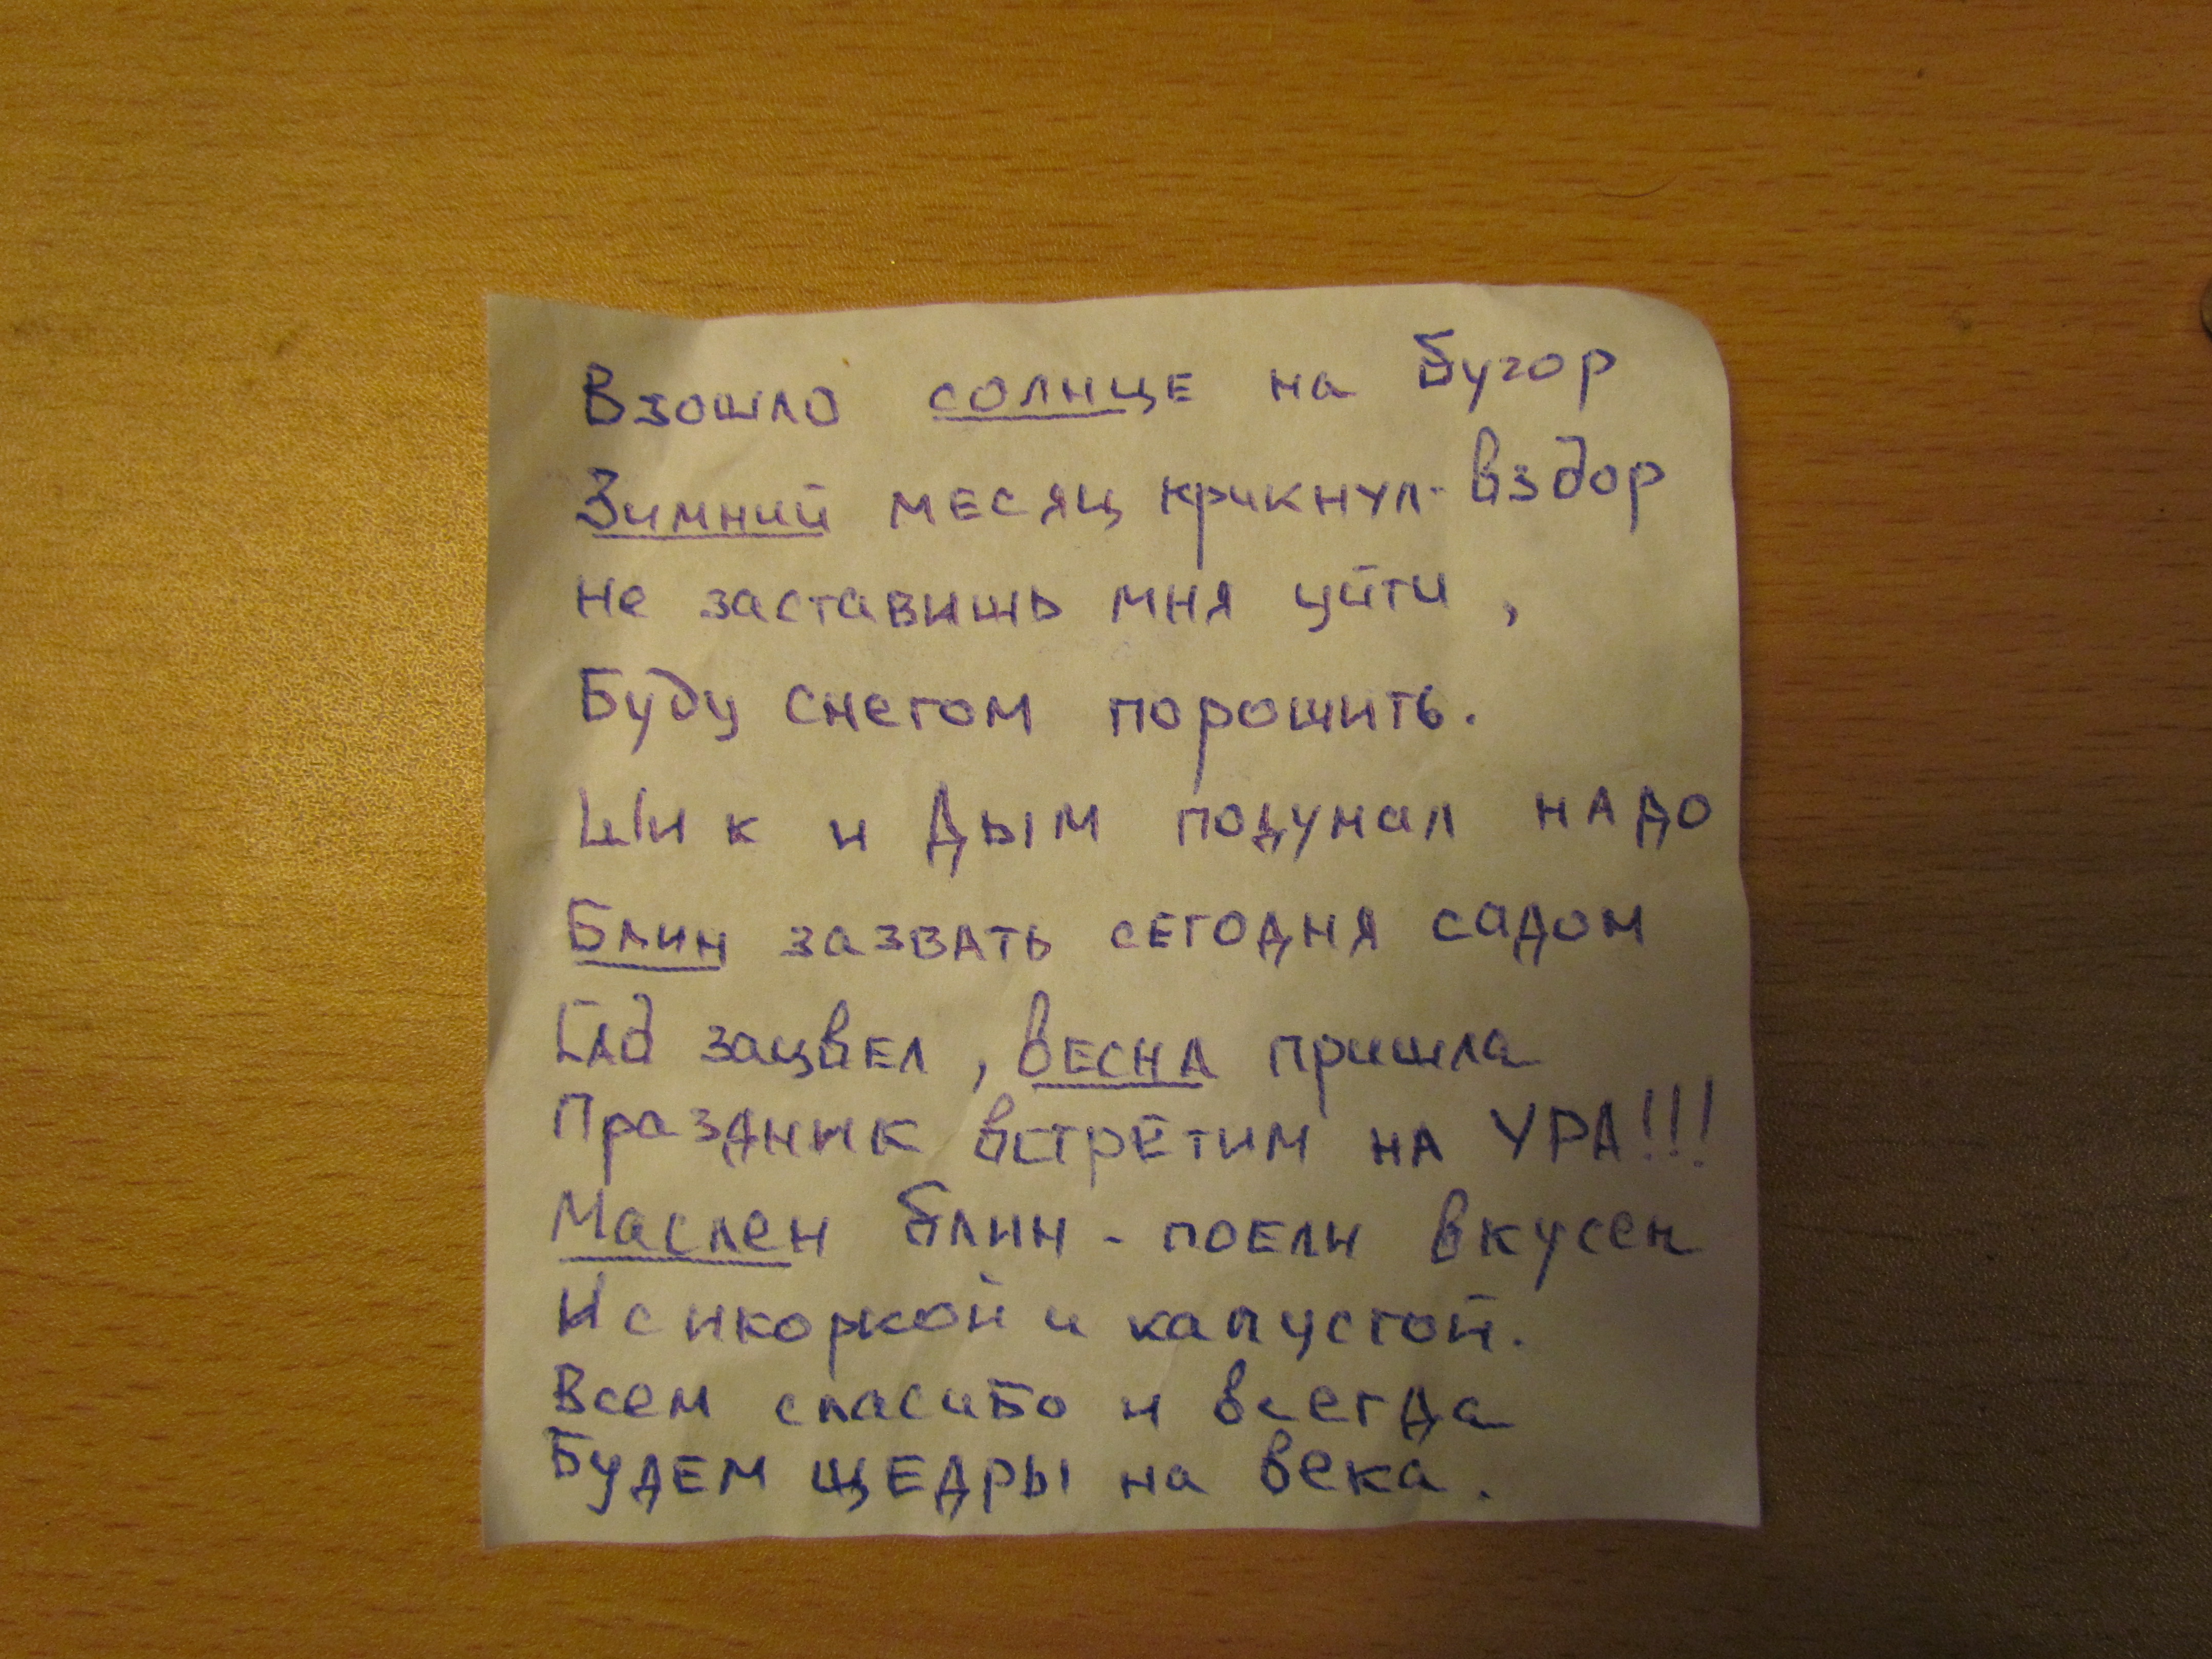 Взошло солнце на бугор
Зимний месяц крикнул - вздор
не заставишь мня уйти,
Буду снегом порошить.
Шик и Дым подумал надо
Блин зазвать сегодня садом
Сад зацвел, весна пришла
Праздник встретим на УРА!!!
Маслен блин - поели вкусен
И с икоркой и капустой.
Всем спасибо и всегда
Будем щедры на века.